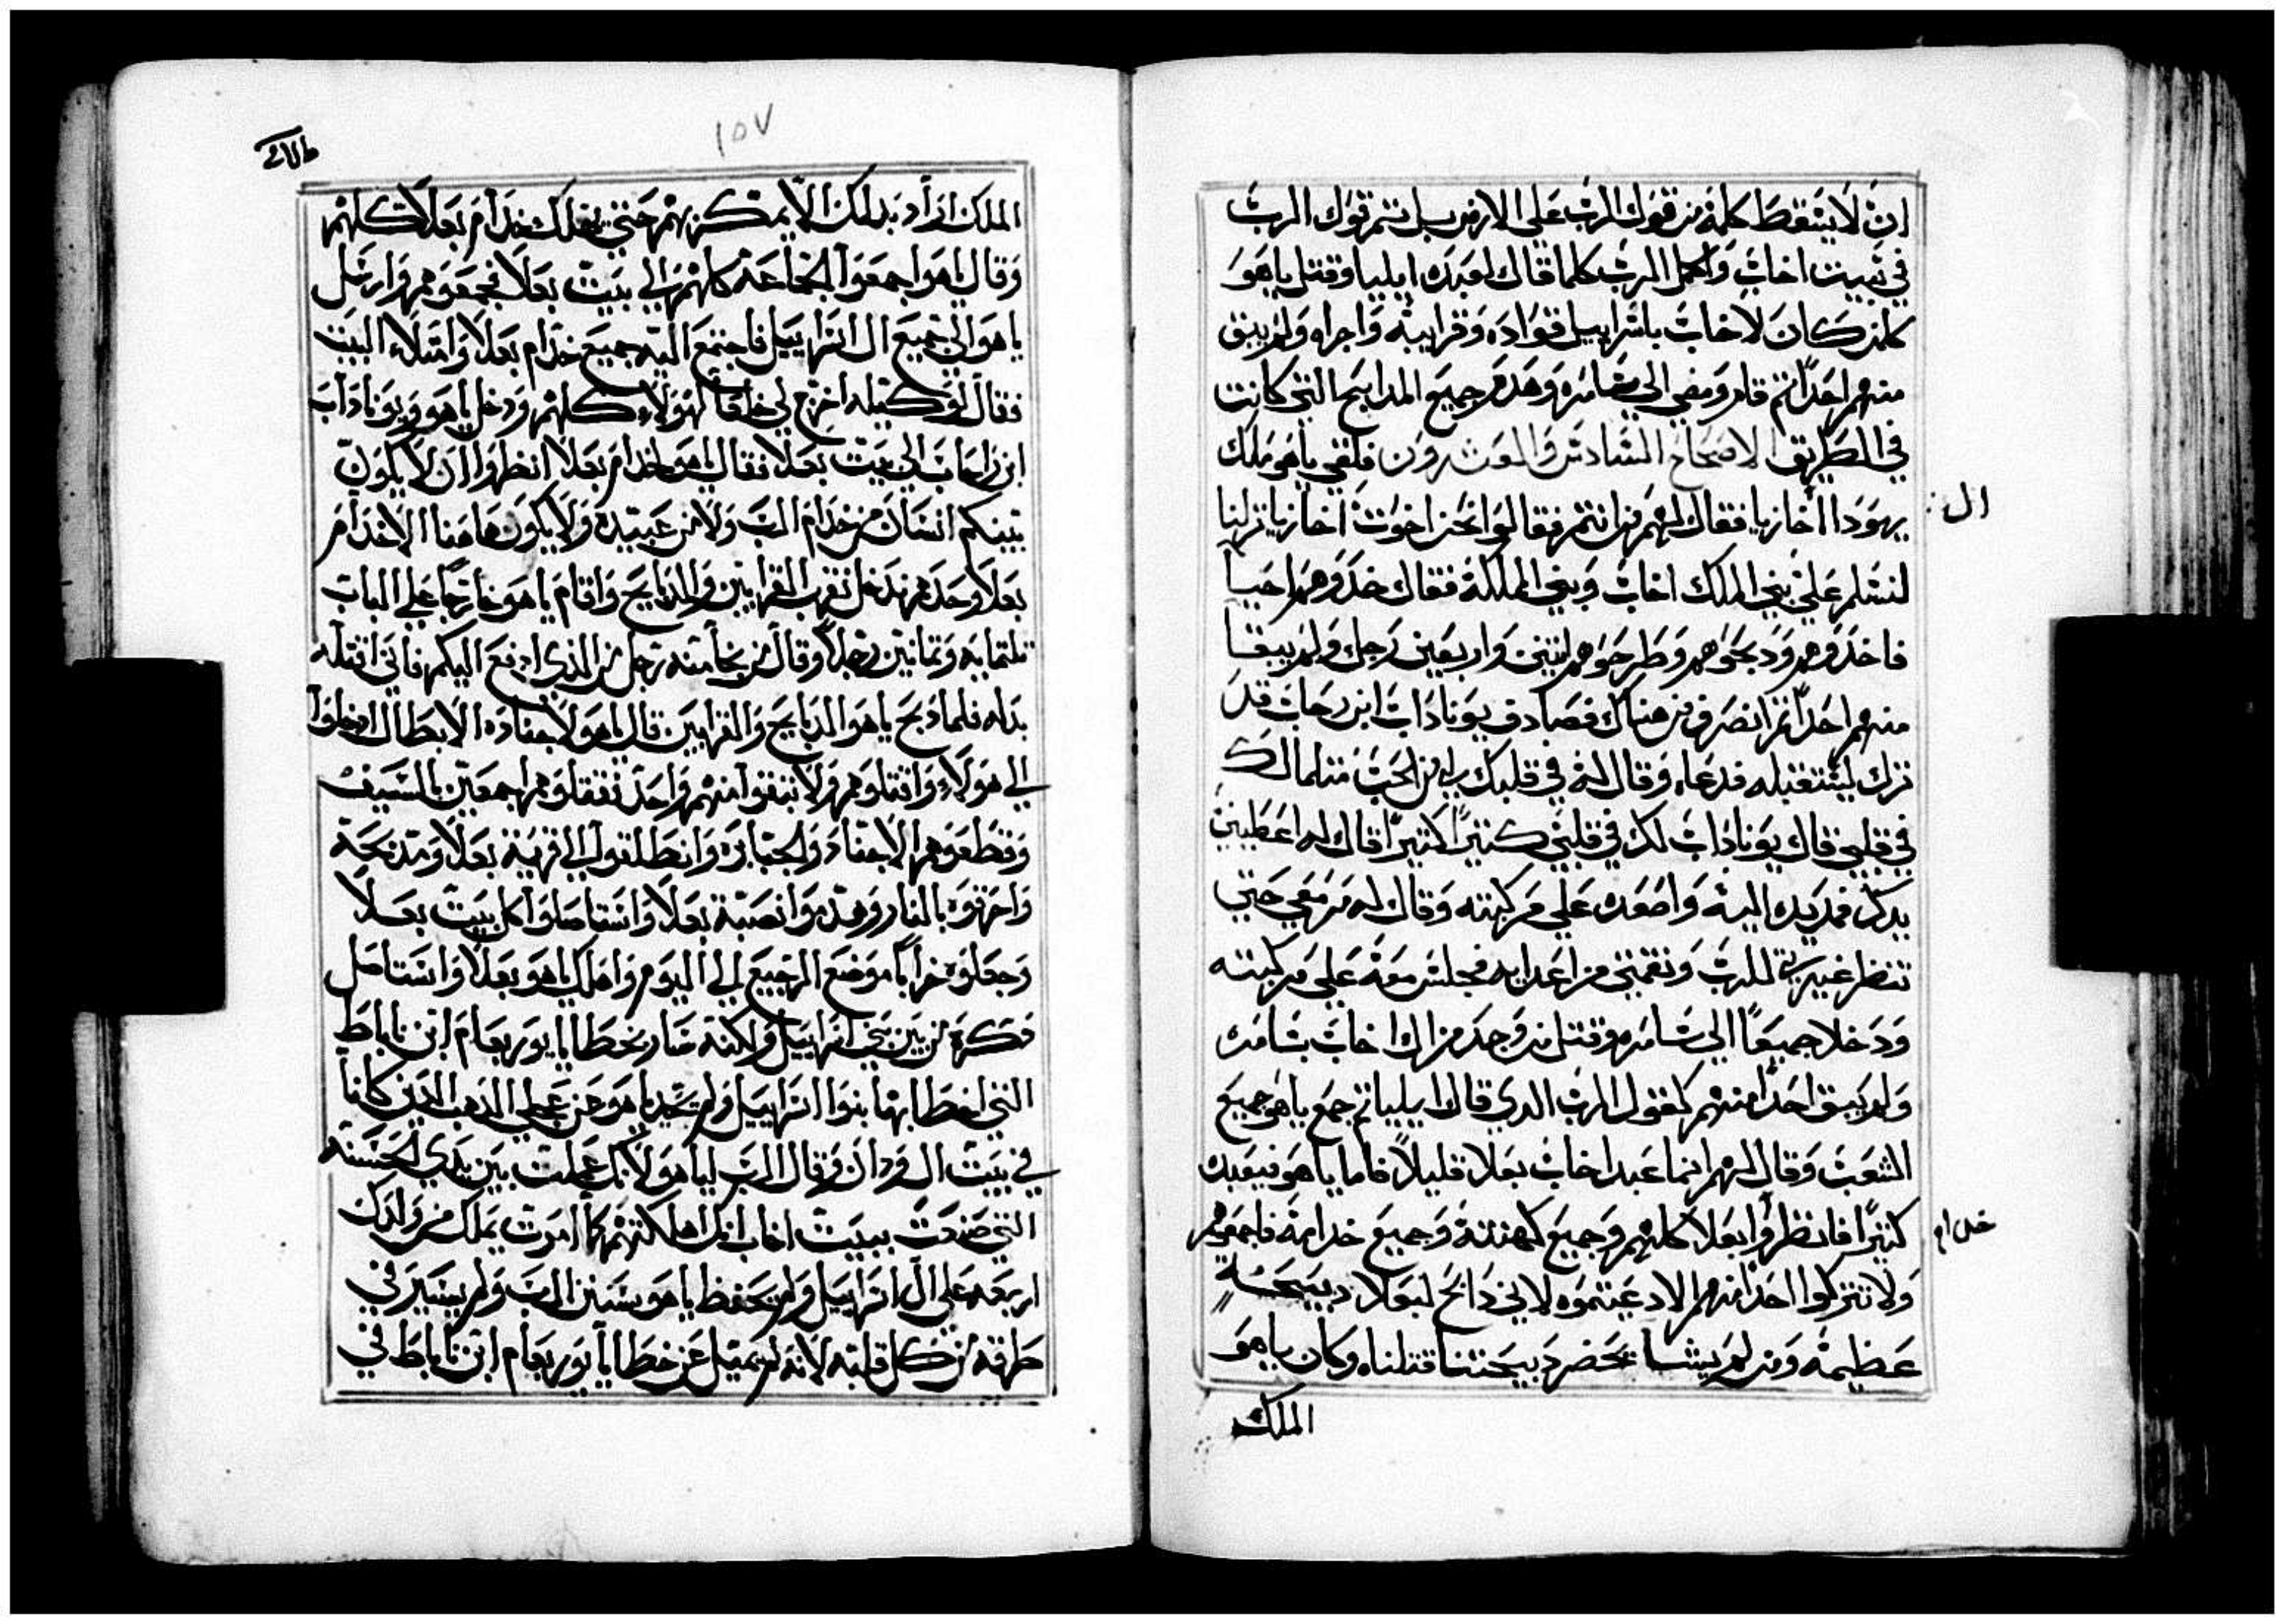 ان لا يسقط كلمة من قول الرب على الارض بل تتم قول الرب
في بيت اخاب واكمل الرب كلما قال لعبده ايليا وقتل ياهو
كلمن كان لاخاب باسراييل قواده وقرايبه واجراه ولم يبق
منهم احداً ثم قام ومضى الى شامره وهدم جميع المدابح التي كانت
في الطريق الاصحاح السادس والعشرون فلقي ياهو ملك
ال
يهودا اخازيا فقال لهم من انتم فقالوا نحن اخوت اخازيا نزلنا
لنسلم على بني الملك اخاب وبني الملكة فقال خدوهم احيا
فاخدوهم ودبحوهم وطرحوهم اتنين واربعين رجل ولم يبقا
منهم احداً ثم انصرف من هناك فصادف يوناداب ابن رحاب قد
نزل ليستقبله فدعاه وقال له في قلبك لي من الحب مثلما لك
في قلبي قال يوناداب لك في قلبي كتيراً كتيراً قال له اعطيني
يدك فمد يده اليه واصعده على مركبته وقال له مر معي حتى
تنظر غيرتي للرب ونقمتي من اعدايه فجلس معه على مركبته
ودخلا جميعاً الى شامره وقتل من وجد من ال اخاب بشامره
ولم يبق احداً منهم كقول الرب الدي قال ايليا ثم جمع ياهو جميع
الشعب وقال لهم انما عبد اخاب بعلا قليلاً فاما ياهو فيعبده
كتيراً فانظروا بعلا كلهم وجميع كهنته وجميع خدامه فاجمعوهم
خدام
ولا تتركوا احداً منهم الا دعيتموه لاني دابح لبعلا دبيحة
عظيمة ومن لم يشا يحضر دبيحتنا قتلناه وكان ياهو
الملك
١٥٧
الملك اراد بدلك الا يمكر بهم حتى يهلك خدام بعلا كلهم
وقال ياهو اجمعوا الجماعة كلهم الى بيت بعلا فجمعوهم وارسل
ياهو الى جميع ال اسراييل فاجتمع اليه جميع خدام بعلا وامتلا البيت
فقال لوكيله اخرج لي خلعاً لهولاء كلهم ودخل ياهو ويوناداب
ابن راحاب الى بيت بعلا فقال ياهو لخدام بعلا انظروا ان لا يكون
بينكم انسان من خدام الرب ولا من عبيده ولا يكون هاهنا الا خدام
بعلا وحدهم فدخل تقرب القرابين والدبايح واقام ياهو خارجاً على الباب
تلتمايه وتمانين رجلاً وقال من نجا منه رجل من الذي ادفع اليكم فاني اقتله
بداله فلما دبح ياهو الدبايح والقرابين قال ياهو لاجناده الابطال ادخلوا
الى هولاء واقتلوهم ولا تبقوا منهم واحد فقتلوهم اجمعين بالسيف
وقطعوهم الاجناد والجبابره وانطلقوا الى قرية بعلا ومدبحة
واحرقوه بالنار وهدموا نصبة بعلا واستاصلوا كل بيت بعلا
وجعلوه خراباً موضع الرجيع الى اليوم واهلك ياهو بعلا واستاصل
دكره من بين بني اسراييل ولكنه سار بخطايا يوربعام ابن ناباط
التي اخطا بها بنوا اسراييل ولم يحيد ياهو عن عجلي الدهب الدين كانا
في بيت ال ودان وقال الرب لياهو لانك عملت بين يدي الحسنه
التي صنعت ببيت اخاب انك اهلكتهم كما امرت يملك من ولدك
اربعه على ال اسراييل ولم يحفظ ياهو سنن الرب ولم يسير في
طرقه من كل قلبه لانه لم يميل عن خطايا يوربعام ابن ناباط في